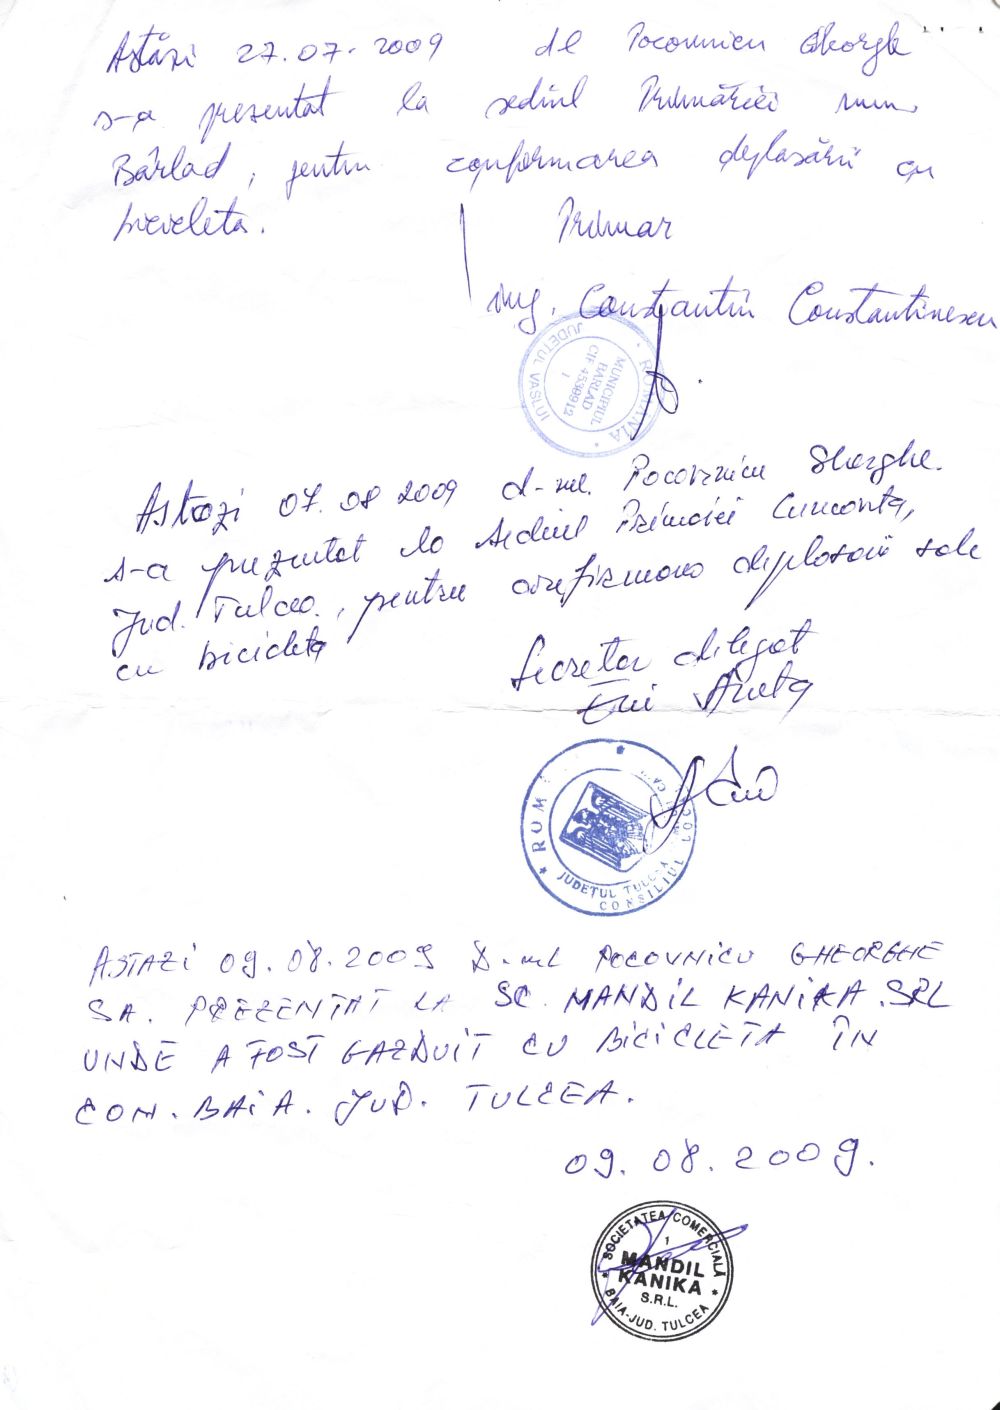 Astăzi 27.07.2009 dl Pocovnicu Gheorghe
s-a prezentat la sediul Primăriei mun
Bârlad, pentru confirmarea deplasării cu
bicicleta.
Primar
ing. Constantin Constantinescu
ROMANIA
JUDEȚUL VASLUI
MUNICIPIUL
BARLAD
CIF 4539912
1
Astăzi 07.08 2009 d-nul. Pocovnicu Gheorghe.
s-a prezentat la sediul Primăriei
Jud. Tulcea, pentru confirmarea deplasării sale
cu bicicleta
Secretar delegat
ROM
JUDEȚUL TULCEA
CONSILIUL LOCAL
ASTAZI 09.08.2009 D-nul POCOVNICU GHEORGHE
SA. PREZENTAT LA SC. MANDIL KANIKA.SRL
UNDE A FOST GAZDUIT CU BICICLETA ÎN
COM. BAIA. JUD. TULCEA.
09.08.2009.
SOCIETATEA COMERCIALĂ
1
MANDIL
KANIKA
S.R.L.
BAIA-JUD. TULCEA